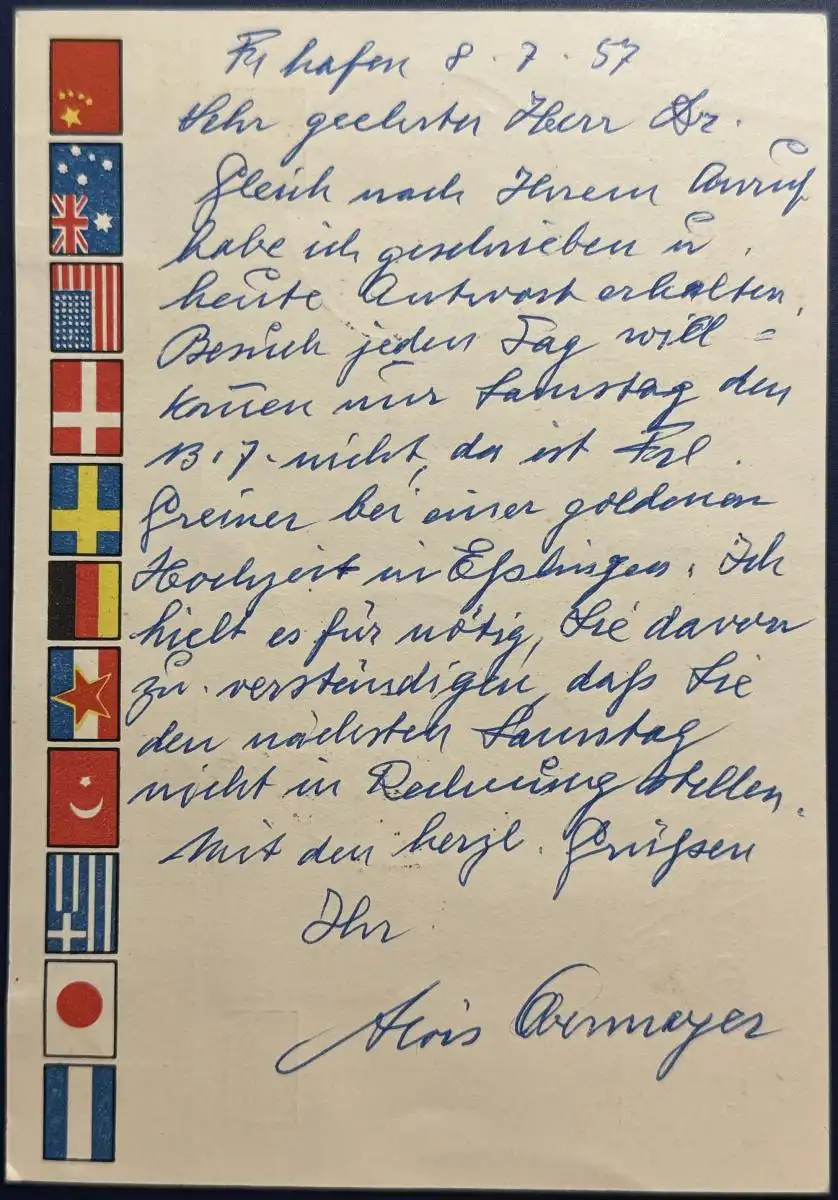 Fr hafen 8.7.57
Sehr geehrter Herr Dr.
Gleich nach Ihrem Anruf
habe ich geschrieben u.
heute Antwort erhalten.
Besuch jeden Tag will=
kom̄en nur Samstag den
13.7. nicht, da ist Frl.
Greiner bei einer goldenen
Hochzeit in Eßlingen. Ich
hielt es für nötig, Sie davon
zu verständigen, daß Sie
den nächsten Samstag
nicht in Rechnung stellen.
Mit den herzl. Grüßen
Ihr
Alois Obermayer